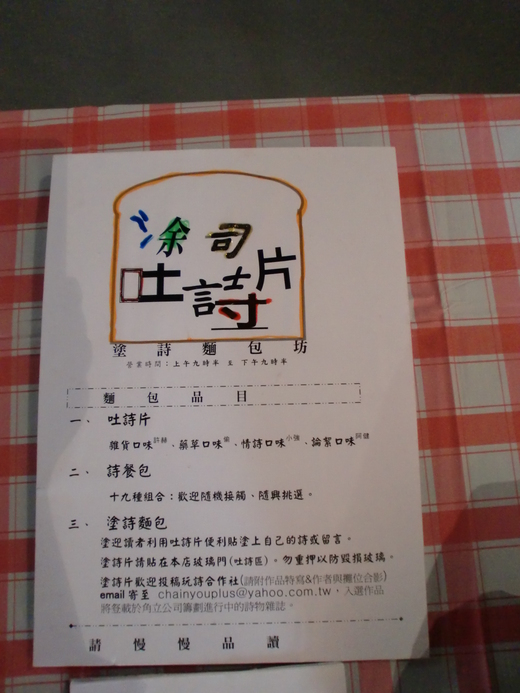 涂司
吐詩片
塗詩麵包坊
營業時間：上午九時半至下午九時半
麵包品目
一、 吐詩片
雜貨口味許赫、藥草口味紫、情詩口味小強、論絮口味阿健
二、 詩餐包
十九種組合：歡迎隨機接觸、隨興挑選。
三、 塗詩麵包
塗迎讀者利用吐詩片便利貼塗上自己的詩或留言。
塗詩片請貼在本店玻璃門(吐詩區)。勿重押以防毀損玻璃。
塗詩片歡迎投稿玩詩合作社(請附作品特寫&作者與攤位合影)
email寄至 chainyouplus@yahoo.com.tw，入選作品
將登載於角立公司籌劃進行中的詩物雜誌。
請慢慢品讀